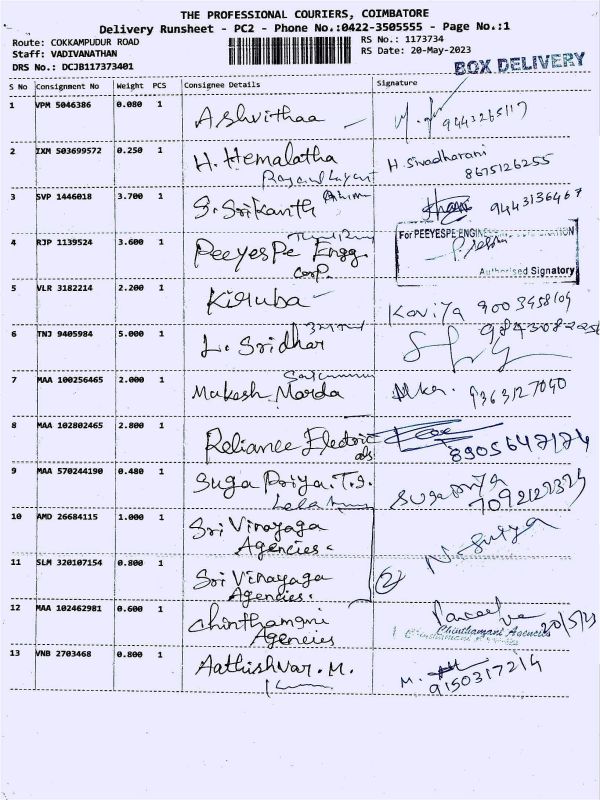 THE PROFESSIONAL COURIERS, COIMBATORE
Delivery Runsheet - PC2 - Phone No.:0422-3505555 - Page No.:1
Route: COKKAMPUDUR ROAD
RS No.: 1173734
Staff: VADIVANATHAN
RS Date: 20-May-2023
DRS No.: DCJB117373401
BOX DELIVERY
S No Consignment No Weight PCS Consignee Details Signature
1 VPM 5046386 0.080 1 Ashvithaa
2 IXM 503699572 0.250 1 H. Hemalatha H. Sivadharani
8675126255
3 SVP 1446018 3.700 1 S. Srikanth 9443136467
4 RJP 1139524 3.600 1 PeeyesPe Engg. Corp. For PEEYESPE ENGINE
Authorised Signatory
5 VLR 3182214 2.200 1 Kiruba Kaviya
6 TNJ 9405984 5.000 1 L. Sridhar
7 MAA 100256465 2.000 1 Mukesh Marda 9363127040
8 MAA 102802465 2.800 1 Reliance Electric als 8905647174
9 MAA 570244190 0.480 1 Suga Priya. T.S. Sugapriya
10 AMD 26684115 1.000 1 Sri Vinayaga Agencies. N. Surya
11 SLM 320107154 0.800 1 Sri Vinayaga Agencies. 2
12 MAA 102462981 0.600 1 Chinthamani Agencies Chinthamani Agencies 20/5/23
13 VNB 2703468 0.800 1 Aathishvar. M. M.
9150317214